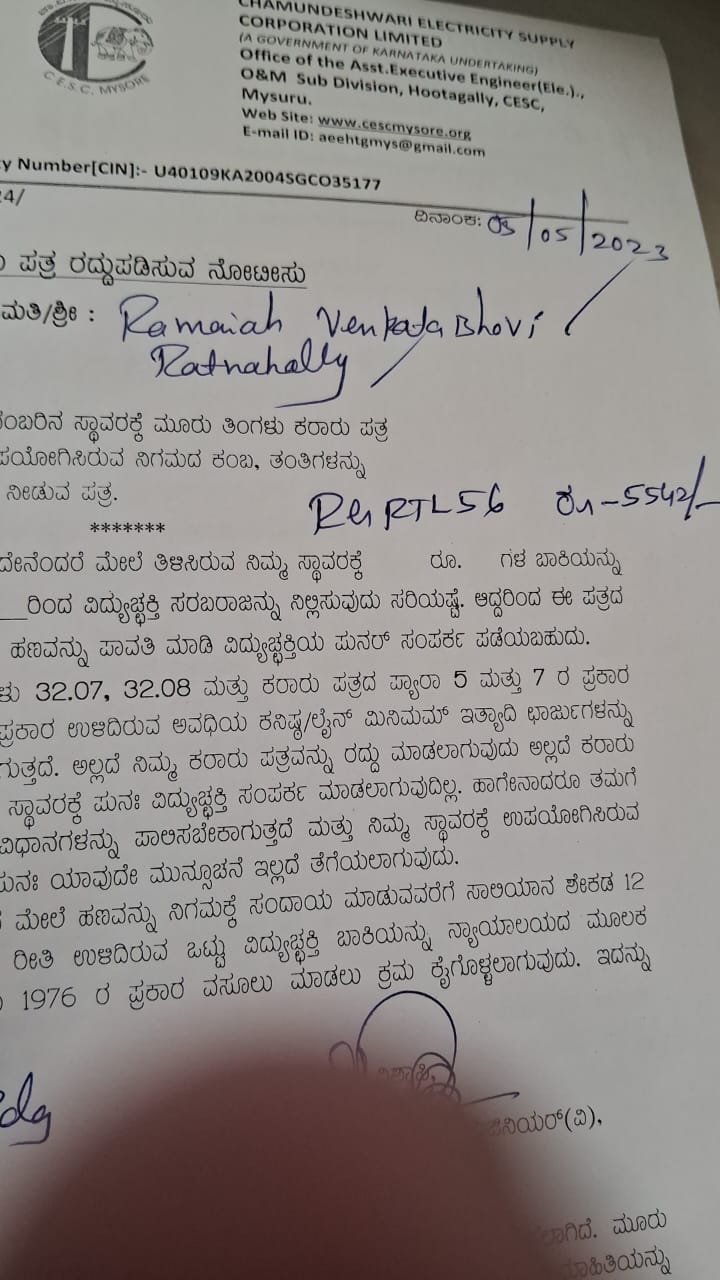 C.E.S.C. MYSORE
CHAMUNDESHWARI ELECTRICITY SUPPLY
CORPORATION LIMITED
(A GOVERNMENT OF KARNATAKA UNDERTAKING)
Office of the Asst.Executive Engineer(Ele.).,
O&M Sub Division, Hootagally, CESC,
Mysuru.
Web Site: www.cescmysore.org
E-mail ID: aeehtgmys@gmail.com
y Number[CIN]:- U40109KA2004SGCO35177
24/
ದಿನಾಂಕ: 03/05/2023
ಪತ್ರ ರದ್ದುಪಡಿಸುವ ನೋಟೀಸು
ಮತಿ/ಶ್ರೀ : Ramaiah Venkata Bhovi
Ratnahally
ಂಬರಿನ ಸ್ಥಾವರಕ್ಕೆ ಮೂರು ತಿಂಗಳು ಕರಾರು ಪತ್ರ
ಪಯೋಗಿಸಿರುವ ನಿಗಮದ ಕಂಬ, ತಂತಿಗಳನ್ನು
ನೀಡುವ ಪತ್ರ.
RTL56 ರೂ-5542/-
*******
ದೇನೆಂದರೆ ಮೇಲೆ ತಿಳಿಸಿರುವ ನಿಮ್ಮ ಸ್ಥಾವರಕ್ಕೆ ರೂ. ಗಳ ಬಾಕಿಯನ್ನು
___ರಿಂದ ವಿದ್ಯುಚ್ಛಕ್ತಿ ಸರಬರಾಜನ್ನು ನಿಲ್ಲಿಸುವುದು ಸರಿಯಷ್ಟೆ. ಆದ್ದರಿಂದ ಈ ಪತ್ರದ
ಹಣವನ್ನು ಪಾವತಿ ಮಾಡಿ ವಿದ್ಯುಚ್ಛಕ್ತಿಯ ಪುನರ್ ಸಂಪರ್ಕ ಪಡೆಯಬಹುದು.
ಳು 32.07, 32.08 ಮತ್ತು ಕರಾರು ಪತ್ರದ ಪ್ಯಾರಾ 5 ಮತ್ತು 7 ರ ಪ್ರಕಾರ
ಪ್ರಕಾರ ಉಳಿದಿರುವ ಅವಧಿಯ ಕನಿಷ್ಠ/ಲೈನ್ ಮಿನಿಮಮ್ ಇತ್ಯಾದಿ ಛಾರ್ಜುಗಳನ್ನು
ಗುತ್ತದೆ. ಅಲ್ಲದೆ ನಿಮ್ಮ ಕರಾರು ಪತ್ರವನ್ನು ರದ್ದು ಮಾಡಲಾಗುವುದು ಅಲ್ಲದೆ ಕರಾರು
ಸ್ಥಾವರಕ್ಕೆ ಪುನಃ ವಿದ್ಯುಚ್ಛಕ್ತಿ ಸಂಪರ್ಕ ಮಾಡಲಾಗುವುದಿಲ್ಲ. ಹಾಗೇನಾದರೂ ತಮಗೆ
ವಿಧಾನಗಳನ್ನು ಪಾಲಿಸಬೇಕಾಗುತ್ತದೆ ಮತ್ತು ನಿಮ್ಮ ಸ್ಥಾವರಕ್ಕೆ ಉಪಯೋಗಿಸಿರುವ
ಪುನಃ ಯಾವುದೇ ಮುನ್ಸೂಚನೆ ಇಲ್ಲದೆ ತೆಗೆಯಲಾಗುವುದು.
ಮೇಲೆ ಹಣವನ್ನು ನಿಗಮಕ್ಕೆ ಸಂದಾಯ ಮಾಡುವವರೆಗೆ ಸಾಲಿಯಾನ ಶೇಕಡ 12
ರೀತಿ ಉಳಿದಿರುವ ಒಟ್ಟು ವಿದ್ಯುಚ್ಛಕ್ತಿ ಬಾಕಿಯನ್ನು ನ್ಯಾಯಾಲಯದ ಮೂಲಕ
1976 ರ ಪ್ರಕಾರ ವಸೂಲು ಮಾಡಲು ಕ್ರಮ ಕೈಗೊಳ್ಳಲಾಗುವುದು. ಇದನ್ನು
ನಿಯರ್(ವಿ),
ಲಾಗಿದೆ. ಮೂರು
ಮಾಹಿತಿಯನ್ನು